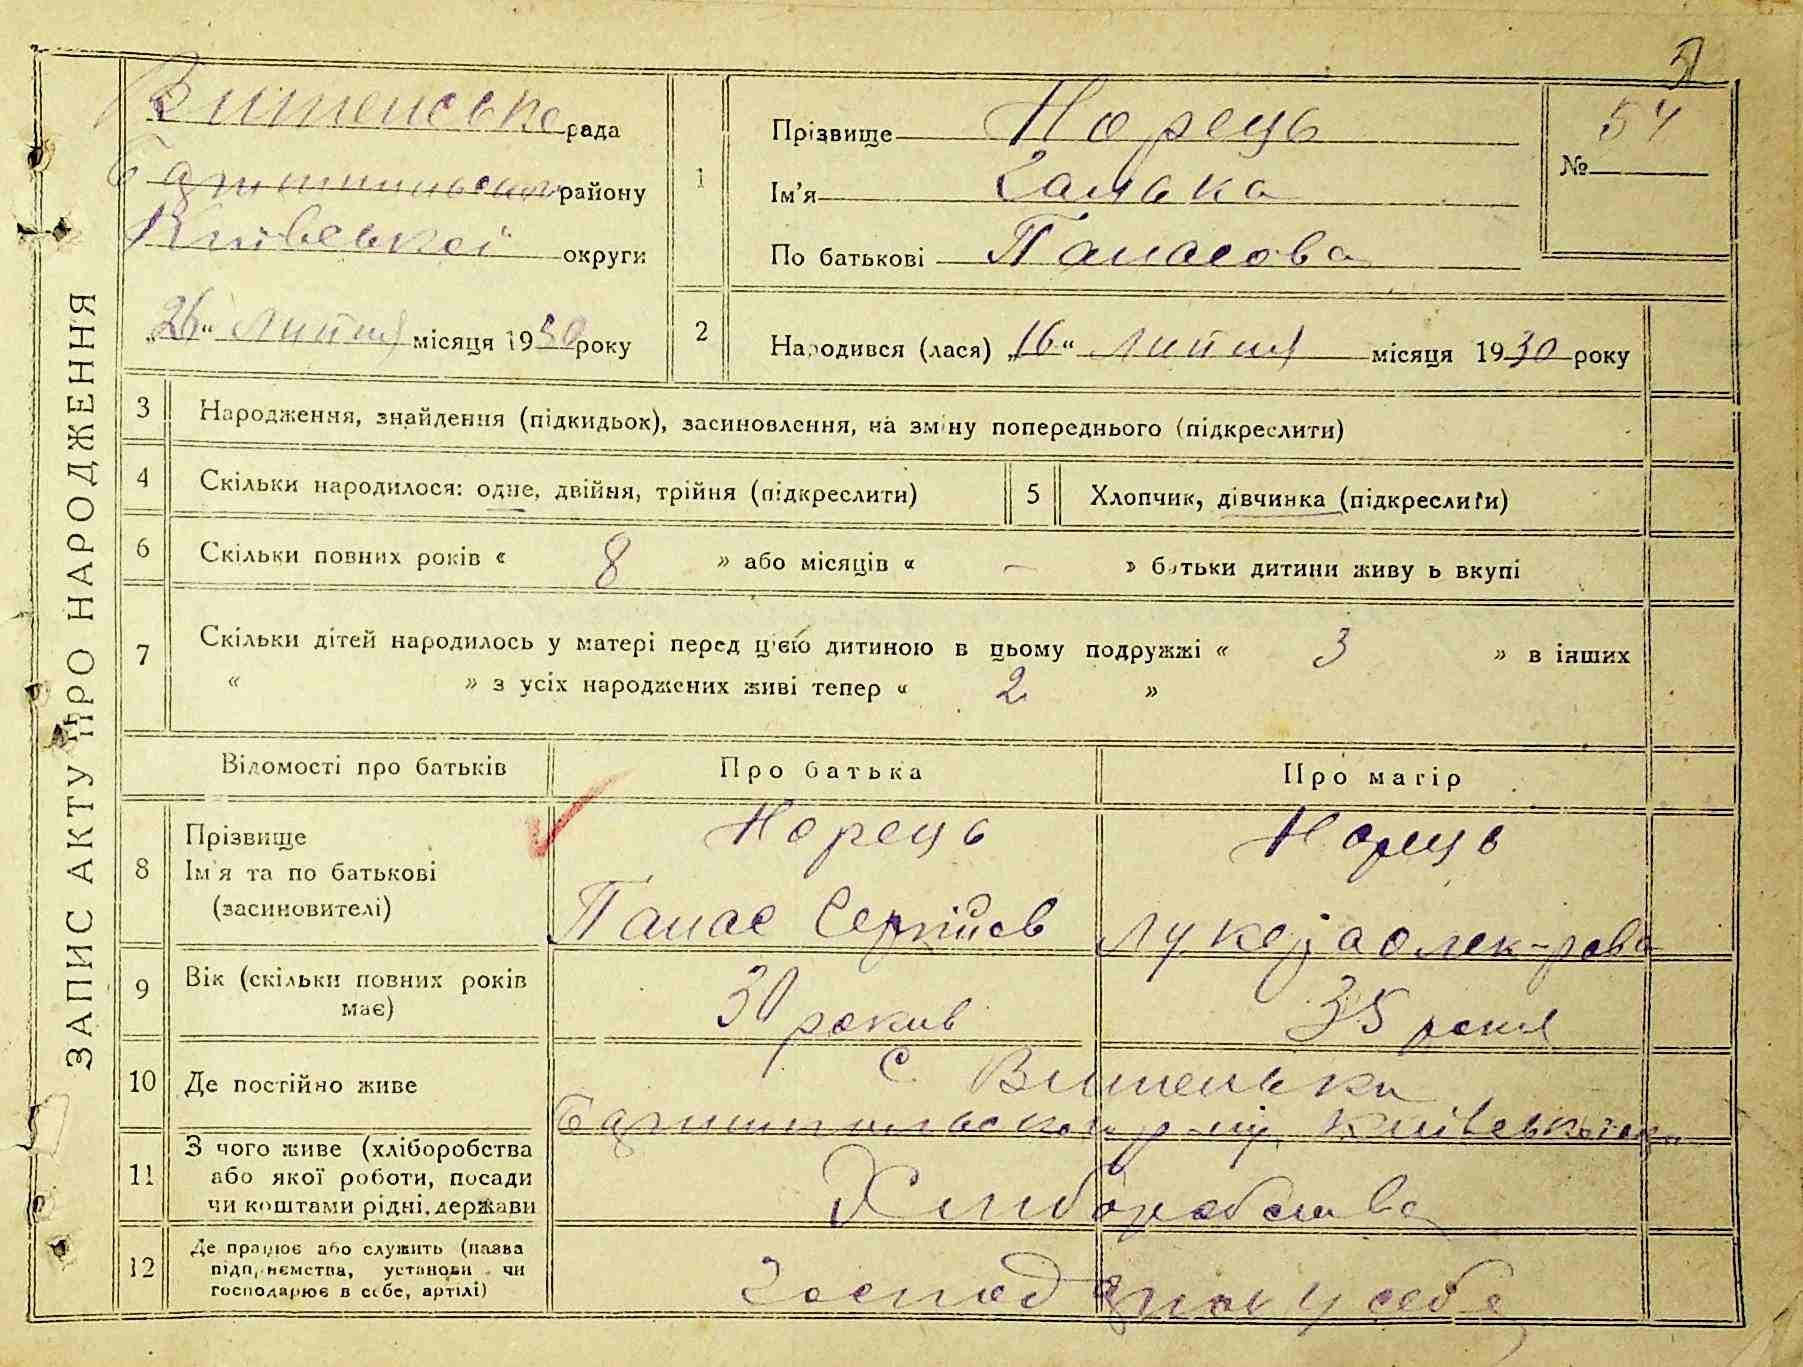 ЗАПИС АКТУ ПРО НАРОДЖЕННЯ
Вишенська рада
району
Київської округи
„26“ Липня місяця 1930 року
1
Прізвище Норець
Ім'я Галька
По батькові Панасова
№ 54
2
Народився (лася) „16“ Липня місяця 1930 року
3 Народження, знайдення (підкидьок), засиновлення, на зміну попереднього (підкреслити)
4 Скільки народилося: одне, двійня, трійня (підкреслити) 5 Хлопчик, дівчинка (підкреслити)
6 Скільки повних років « 8 » або місяців « – » батьки дитини живуть вкупі
7 Скільки дітей народилось у матері перед цією дитиною в цьому подружжі « 3 » в інших
« » з усіх народжених живі тепер « 2 »
Відомості про батьків Про батька Про матір
8 Прізвище Норець Норець
Ім'я та по батькові
(засиновителі) Панас Сергіїв Лукеја Олек-рова
9 Вік (скільки повних років має) 30 років 35 років
10 Де постійно живе С. Вишеньки
Київської
11 З чого живе (хліборобства
або якої роботи, посади Хліборобства
чи коштами рідні, держави
12 Де працює або служить (назва
підприємства, установи чи
господарює в себе, артілі) у себе